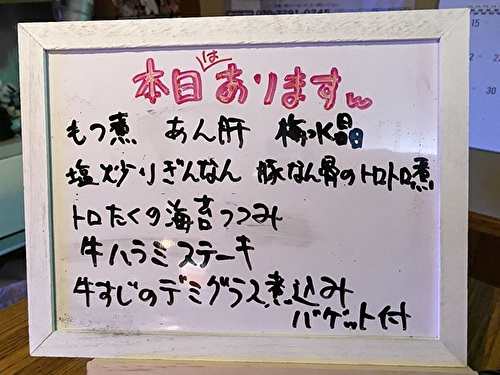 本日はあります
もつ煮 あん肝 梅水晶
塩炒りぎんなん 豚なん骨のトロトロ煮
トロたくの海苔つつみ
牛ハラミステーキ
牛すじのデミグラス煮込み
バゲット付